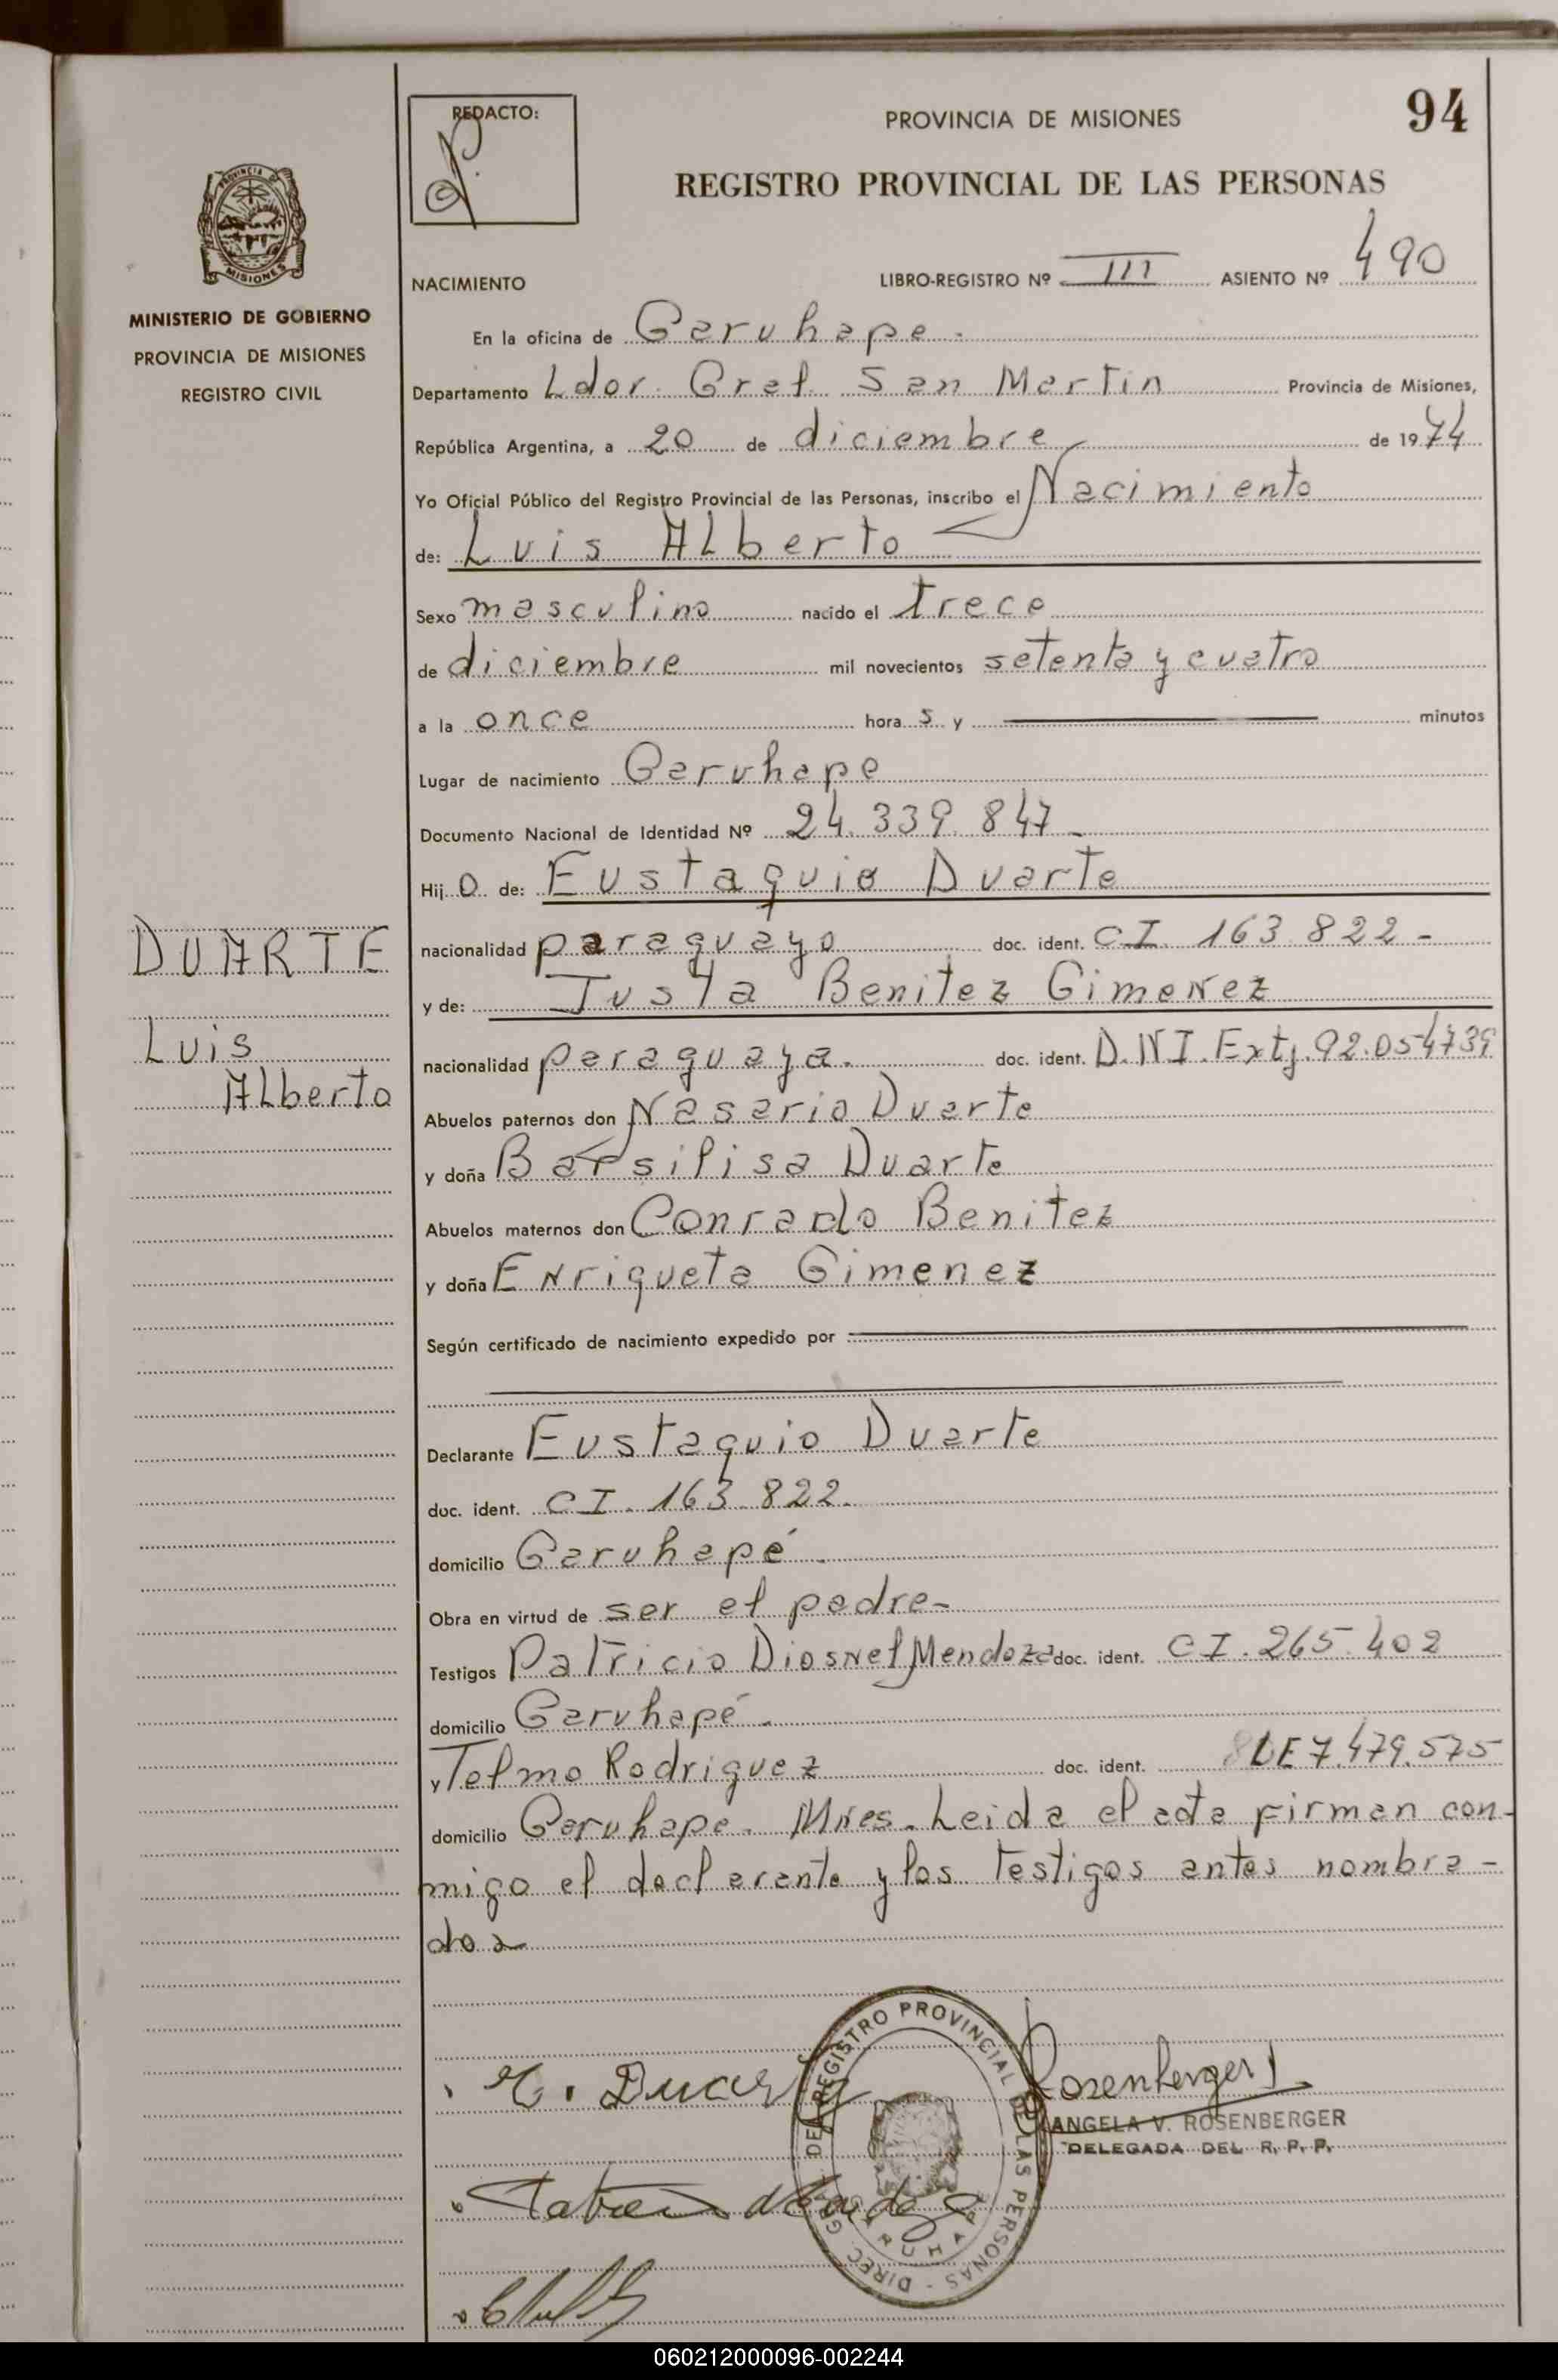 REDACTO:
PROVINCIA DE MISIONES
94
REGISTRO PROVINCIAL DE LAS PERSONAS
MISIONES
MINISTERIO DE GOBIERNO
PROVINCIA DE MISIONES
REGISTRO CIVIL
NACIMIENTO LIBRO-REGISTRO Nº III ASIENTO Nº 490
En la oficina de Garuhape.
Departamento Ldor. Gral. San Martin Provincia de Misiones,
República Argentina, a 20 de diciembre de 1974
Yo Oficial Público del Registro Provincial de las Personas, inscribo el Nacimiento
de: Luis Alberto
Sexo masculino nacido el trece
de diciembre mil novecientos setenta y cuatro
a la once hora s y minutos
Lugar de nacimiento Garuhape
Documento Nacional de Identidad Nº 24.339.847
Hij o de: Eustaquio Duarte
DUARTE
Luis
Alberto
nacionalidad paraguayo doc. ident. CI 163.822-
y de: Justa Benitez Gimenez
nacionalidad paraguaya. doc. ident. D.N.I. Extj. 92.054739
Abuelos paternos don Nasario Duarte
y doña Barsilisa Duarte
Abuelos maternos don Conrado Benitez
y doña Enriqueta Gimenez
Según certificado de nacimiento expedido por
Declarante Eustaquio Duarte
doc. ident. CI. 163.822.
domicilio Garuhapé.
Obra en virtud de ser el padre-
Testigos Patricio Diosnel Mendoza doc. ident. CI. 265.402
domicilio Garuhapé.
y Telmo Rodriguez doc. ident. LE 7.479.575
domicilio Garuhape. Mnes. Leida el acta firman con-
migo el declarante y los testigos antes nombra-
dos
E. Duarte
Rosenberger
ANGELA V. ROSENBERGER
DELEGADA DEL R. P. P.
DIREC. GRAL. DEL REGISTRO PROVINCIAL DE LAS PERSONAS -
GARUHAPE
060212000096-002244